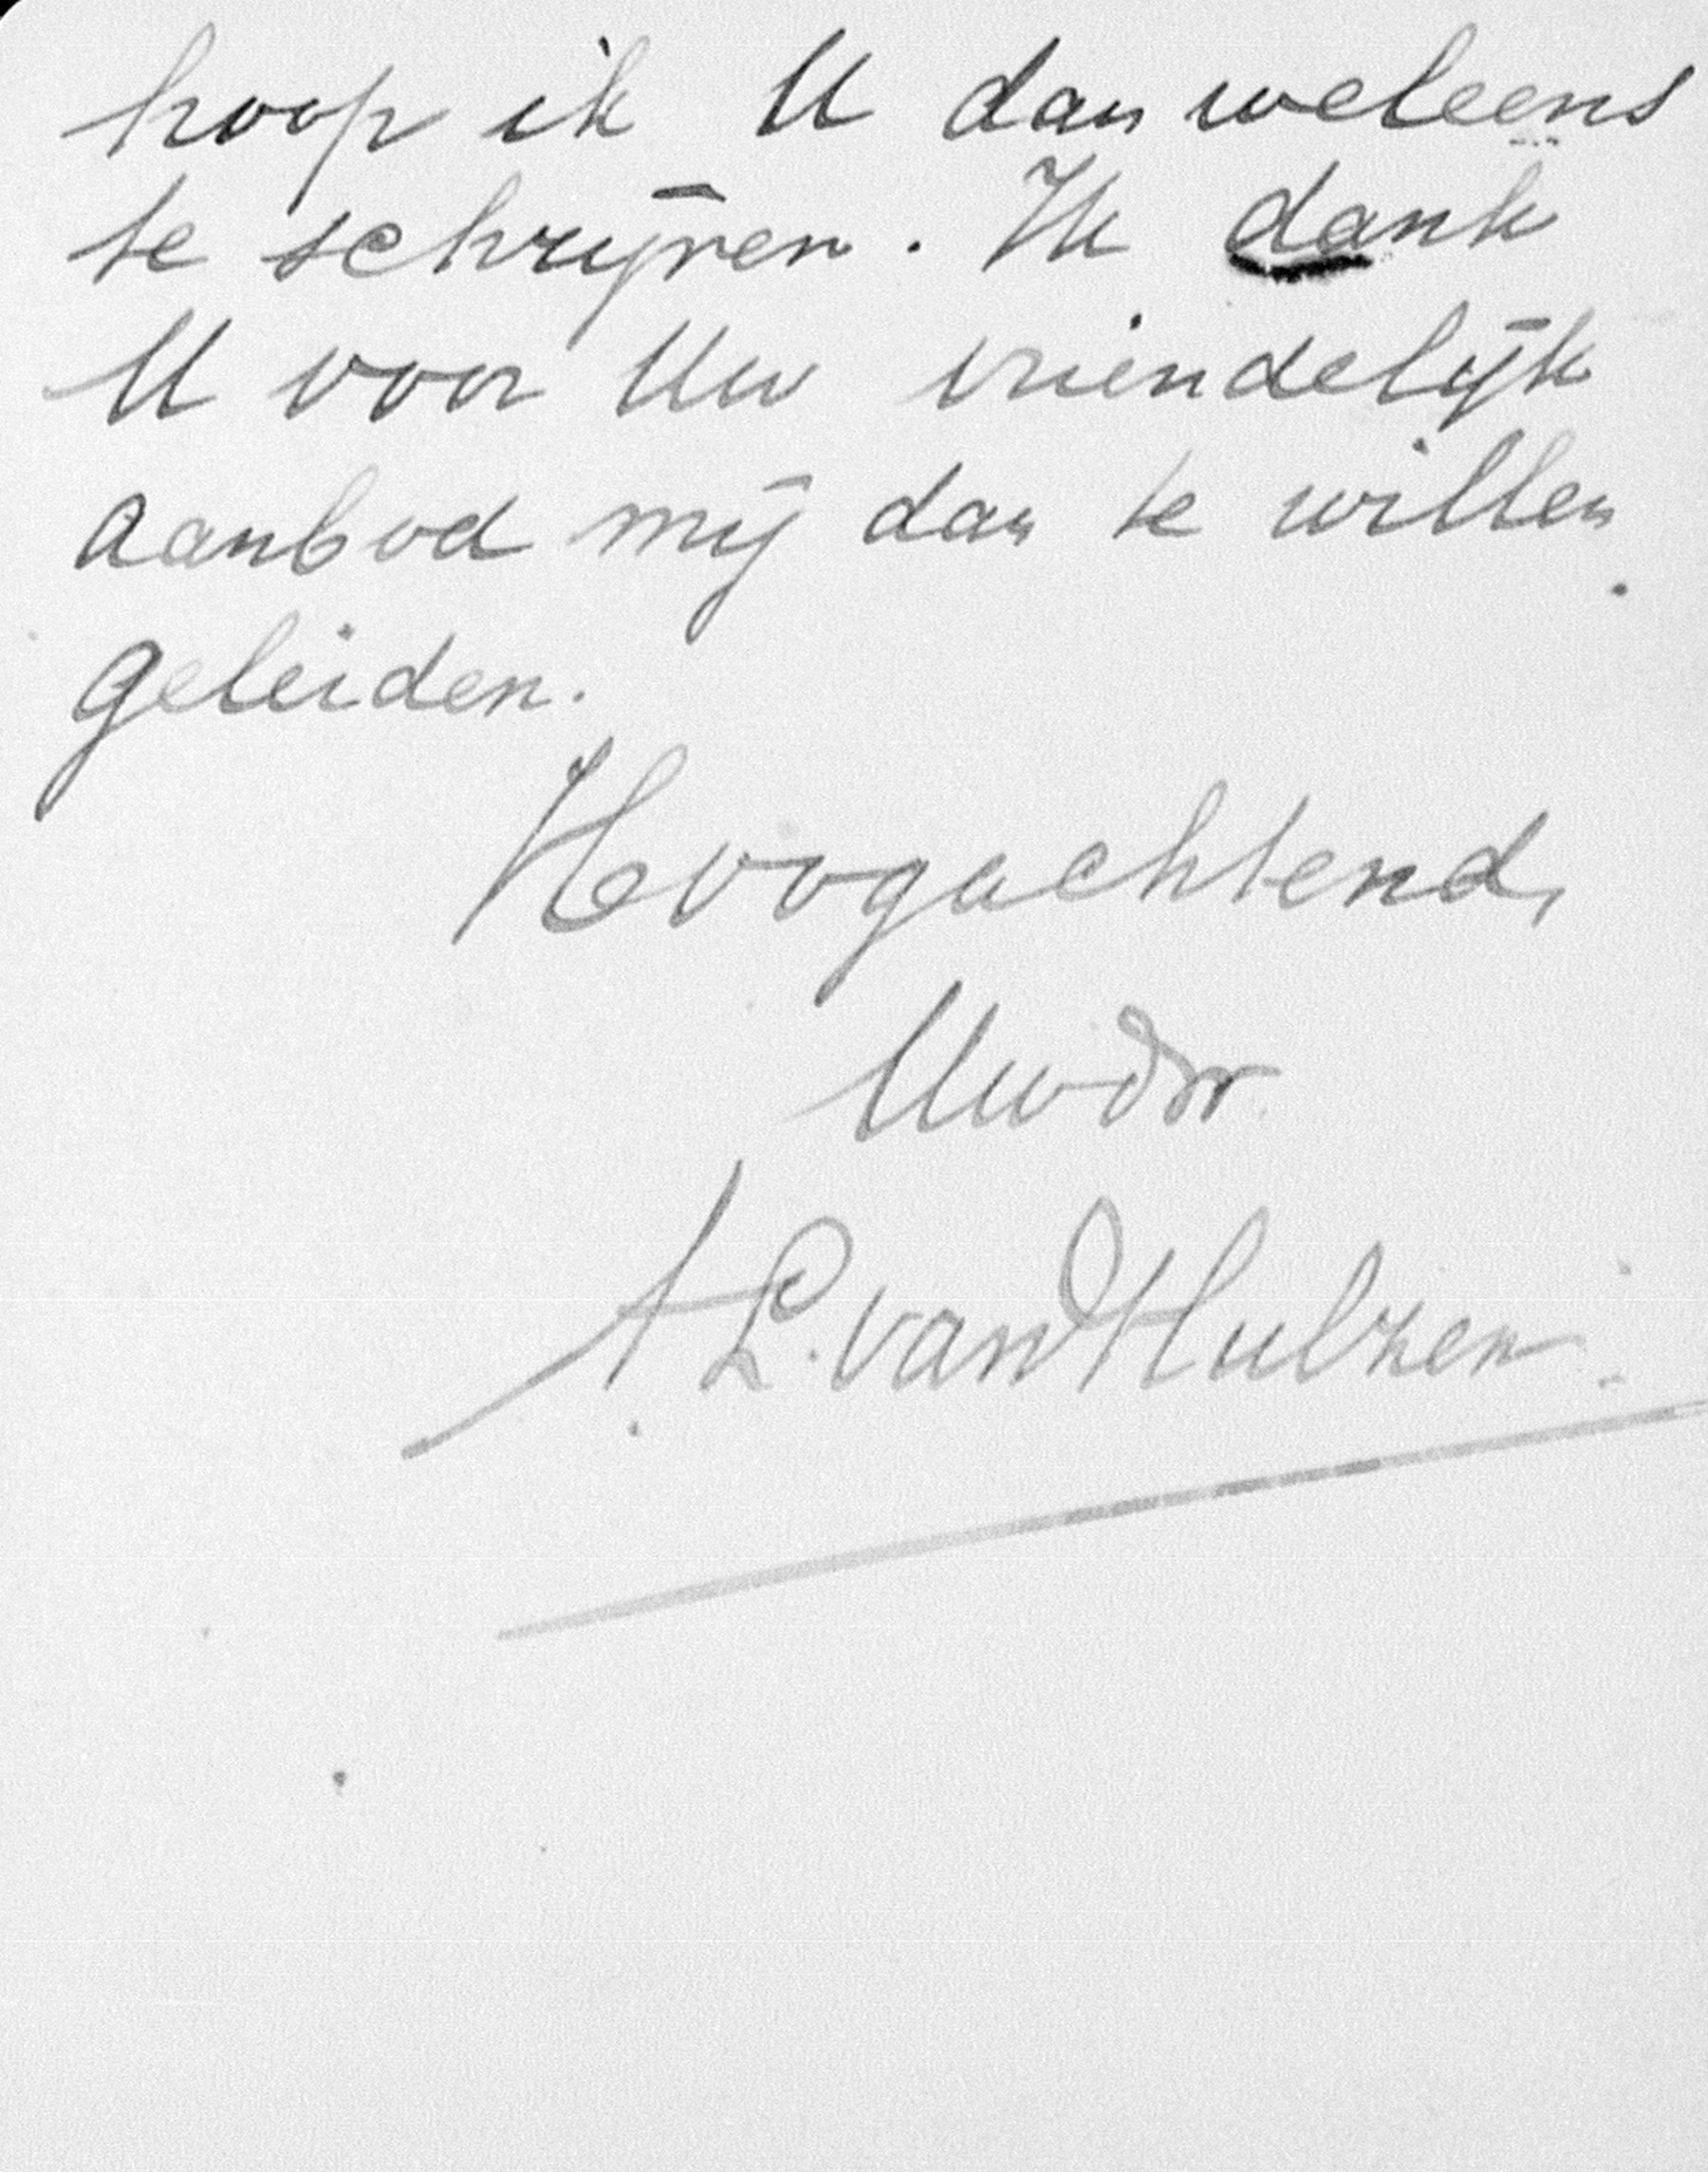 hoop ik U dan weleens
te schrijven. Ik dank
U voor Uw vriendelijk
aanbod mij dan te willen
geleiden.
Hoogachtend,
Uw dr
A.L. van Hulzen.